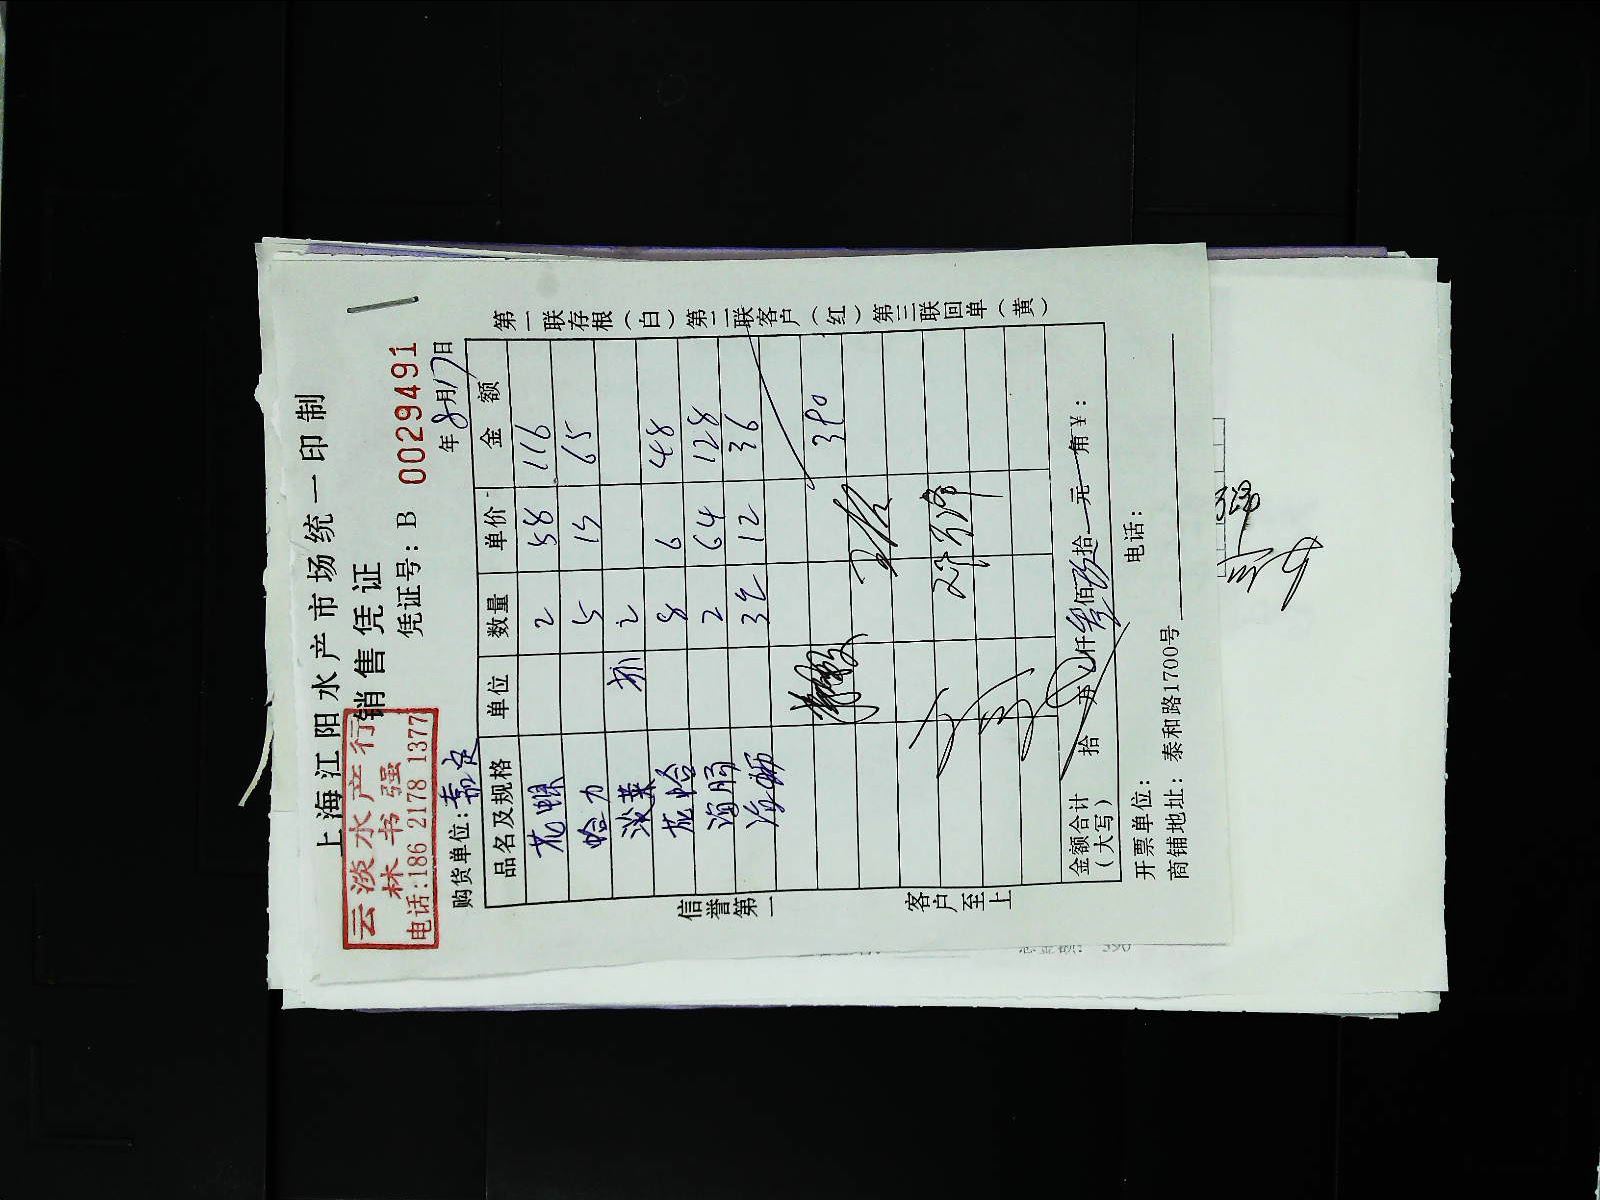 上海江阳水产市场统一印制
销售凭证
云淡水产行
林书强
电话:186 2178 1377
凭证号: B 0029491
购货单位: 嘉定 年8月17日
品名及规格 单位 数量 单价 金额
花螺 2 58 116
蛤力 5 13 65
淡菜 2
花蛤 8 6 48
海肠 2 64 128
海蛎 3 12 36
390
金额合计(大写) 拾 万 仟 叁佰 玖拾 元 角 ¥:
开票单位: 电话:
商铺地址: 泰和路1700号
第一联存根(白)第二联客户(红)第三联回单(黄)
信誉第一
客户至上